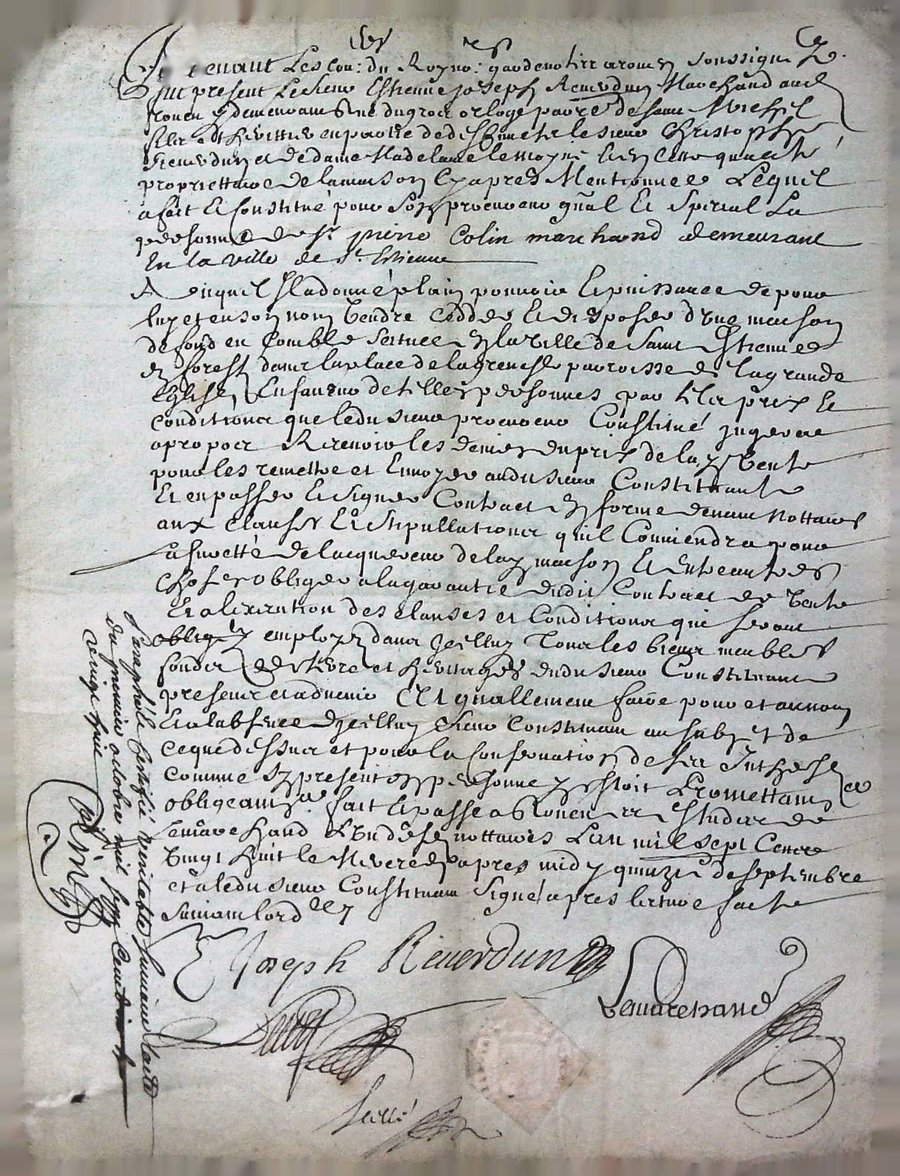 Pardevant Les Con: du Roy no: gardenottes a rouen soussignez
fut present Le sieur Estienne joseph Reverdun Marchand aud
rouen y demeurant rue du gros orloge parroisse
fils et heritier en partie de deffunct le sieur Christophe
Reverdun et de dame Madelaine lemoyne et en cette qualité
propriettaire de la maison cy apres Mentionnee Lequel
a fait et Constitué pour son procureur gnal et special La
personne de sr pierre Colin marchand demeurant
En la ville de st Estienne
Auquel Il a donné plain pouvoir et puissance de pour
luy et en son nom Vendre Cedder et disposer d'une maison
de fond en Comble scituee En la ville de Saint Estienne
en forest dans la place de parroisse de la grande
Eglise En faveur de telles personnes par tel prix et
conditions que ledit sieur procureur Constitué jugera
apropos Recevoir les deniers du prix de lad Vente
pour les remettre et Envoyer audit sieur Constituant
Et en passer et signer Contract En forme devant Nottaires
aux clauses et stipullations quil Conviendra pour
la sureté de lacquereur de lad maison Et entr'autres
Choses obliger a la garantie dudit Contract de Vente
Et a lexecution des clauses et Conditions qui seront
employez dans Icelluy Tous les biens meubles
et heritages dudit sieur Constituant
presens et advenir Et generallement faire pour et au nom
Et en labsence dudit sieur Constituant au subjet de
ce que dessus et pour la Conservation de ses Intherests
comme sy present En personne y Estoit Promettant
obligeant fait et passé a Rouen Es Estudes de
Lemarchand L'un desd nottaires L'an mil sept Cents
Vingt huit le Mercredy apres midy quinze de septembre
et a ledit sieur Constituant signé apres lecture faitte
suivant lord
E Joseph Reverdun
Lemarchand
Scellé
Paraphé et Certifié veritable suivant l'acte
du premier octobre mil sept Cent
vingt huit
Colin